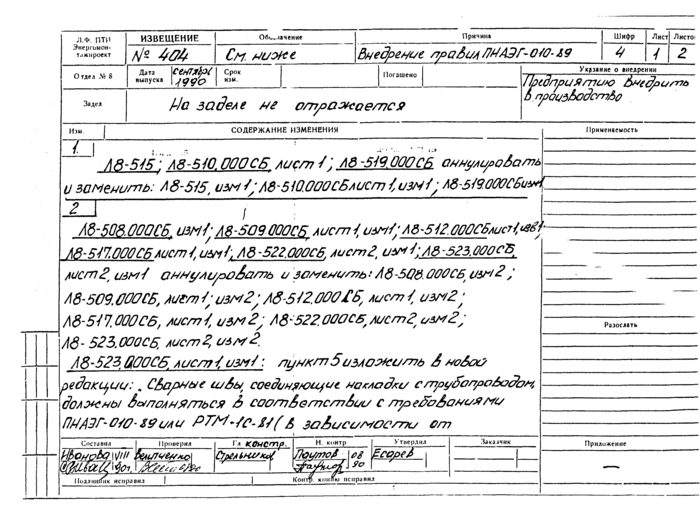 Л.Ф. ПТИ
Энергомон-
тажпроект
ИЗВЕЩЕНИЕ
№ 404
Обозначение
См. ниже
Причина
Внедрение правил ПНАЭГ-010-89
Шифр
4
Лист
1
Листов
2
Отдел № 8
Дата
выпуска
сентябрь
1990
Срок
изм.
Погашено
Указание о внедрении
Предприятию внедрить
в производство
Задел
На заделе не отражается
Изм.
СОДЕРЖАНИЕ ИЗМЕНЕНИЯ
Применяемость
1
Л8-515; Л8-510.000СБ, лист 1; Л8-519.000СБ аннулировать
и заменить: Л8-515, изм1; Л8-510.000СБ лист1, изм1; Л8-519.000СБ изм1
2
Л8-508.000СБ, изм1; Л8-509.000СБ, лист1, изм1; Л8-512.000СБ лист1, изм1;
Л8-517.000СБ лист1, изм1; Л8-522.000СБ, лист2, изм1; Л8-523.000СБ,
лист2, изм1 аннулировать и заменить: Л8-508.000СБ, изм2;
Л8-509.000СБ, лист1, изм2; Л8-512.000СБ, лист1, изм2;
Л8-517.000СБ, лист1, изм2; Л8-522.000СБ, лист2, изм2;
Л8-523.000СБ, лист2, изм2.
Разослать
Л8-523.000СБ, лист1, изм1: пункт 5 изложить в новой
редакции: „Сварные швы, соединяющие накладки с трубопроводом,
должны выполняться в соответствии с требованиями
ПНАЭГ-010-89 или РТМ-1С-81 (в зависимости от
Составил
Проверил
Гл. констр.
Н. контр
Утвердил
Заказчик
Приложение
Иванова
VIII
90г.
Величенко
Стрельников
Паутов
08
90
Есарев
—
Подлинник исправил
Контр. копию исправил